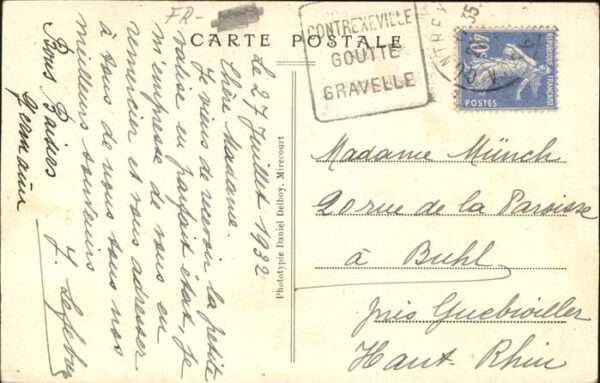 FR-
CARTE POSTALE
CONTREXEVILLE
GOUTTE
GRAVELLE
REPUBLIQUE FRANÇAISE
40c
POSTES
Le 27 Juillet 1932
Chère Madame.
Je viens de recevoir la petite
valise en parfait état, je
m'empresse de vous en
remercier et vous adresser
à tous de nous tous nos
meilleurs souvenirs
J. Lefebvre
Bons Baisers
Germaine
Phototypie Daniel Delboy, Mirecourt
Madame Münch
20 rue de la Paroisse
à Buhl
près Guebwiller
Haut-Rhin